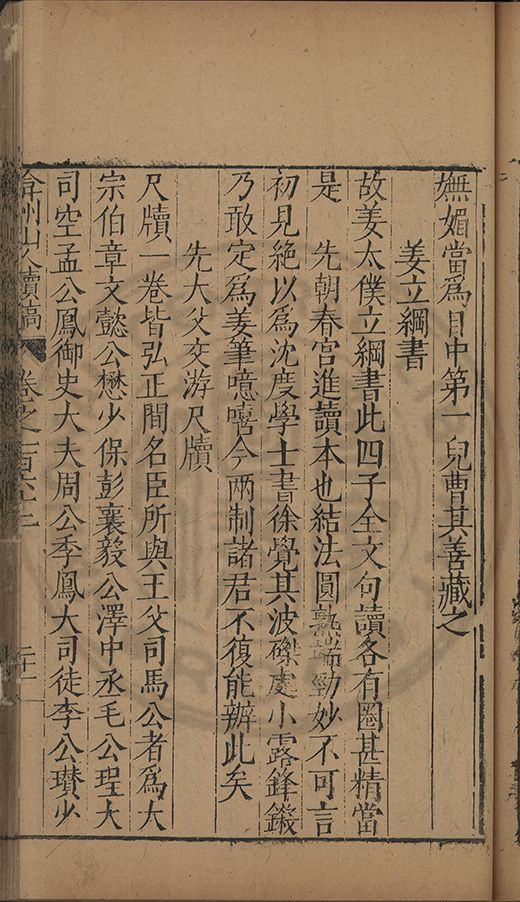 嫵媚當爲目中第一兒曹其善藏之
姜立綱書
故姜太僕立綱書此四子全文句讀各有圈甚精當
是 先朝春宮進讀本也結法圓熟端勁妙不可言
初見絶以爲沈度學士書徐覺其波磔處小露鋒鍛
乃敢定爲姜筆噫嘻今兩制諸君不復能辦此矣
先大父交游尺牘
尺牘一卷皆弘正間名臣所與王父司馬公者爲大
宗伯章文懿公懋少保彭襄毅公澤中丞毛公珵大
司空孟公鳳御史大夫周公季鳳大司徒李公瓚少
弇州山人續稿 卷之一百六十三 二十一